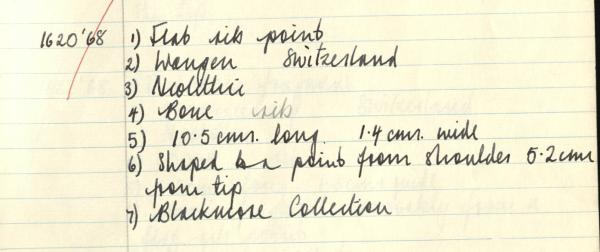 1620'68 1) Flat rib point
2) Wangen Switzerland
3) Neolithic
4) Bone rib
5) 10.5 cms. long 1.4 cms. wide
6) Shaped to a point from shoulder 5.2 cms
from tip
7) Blackmore Collection